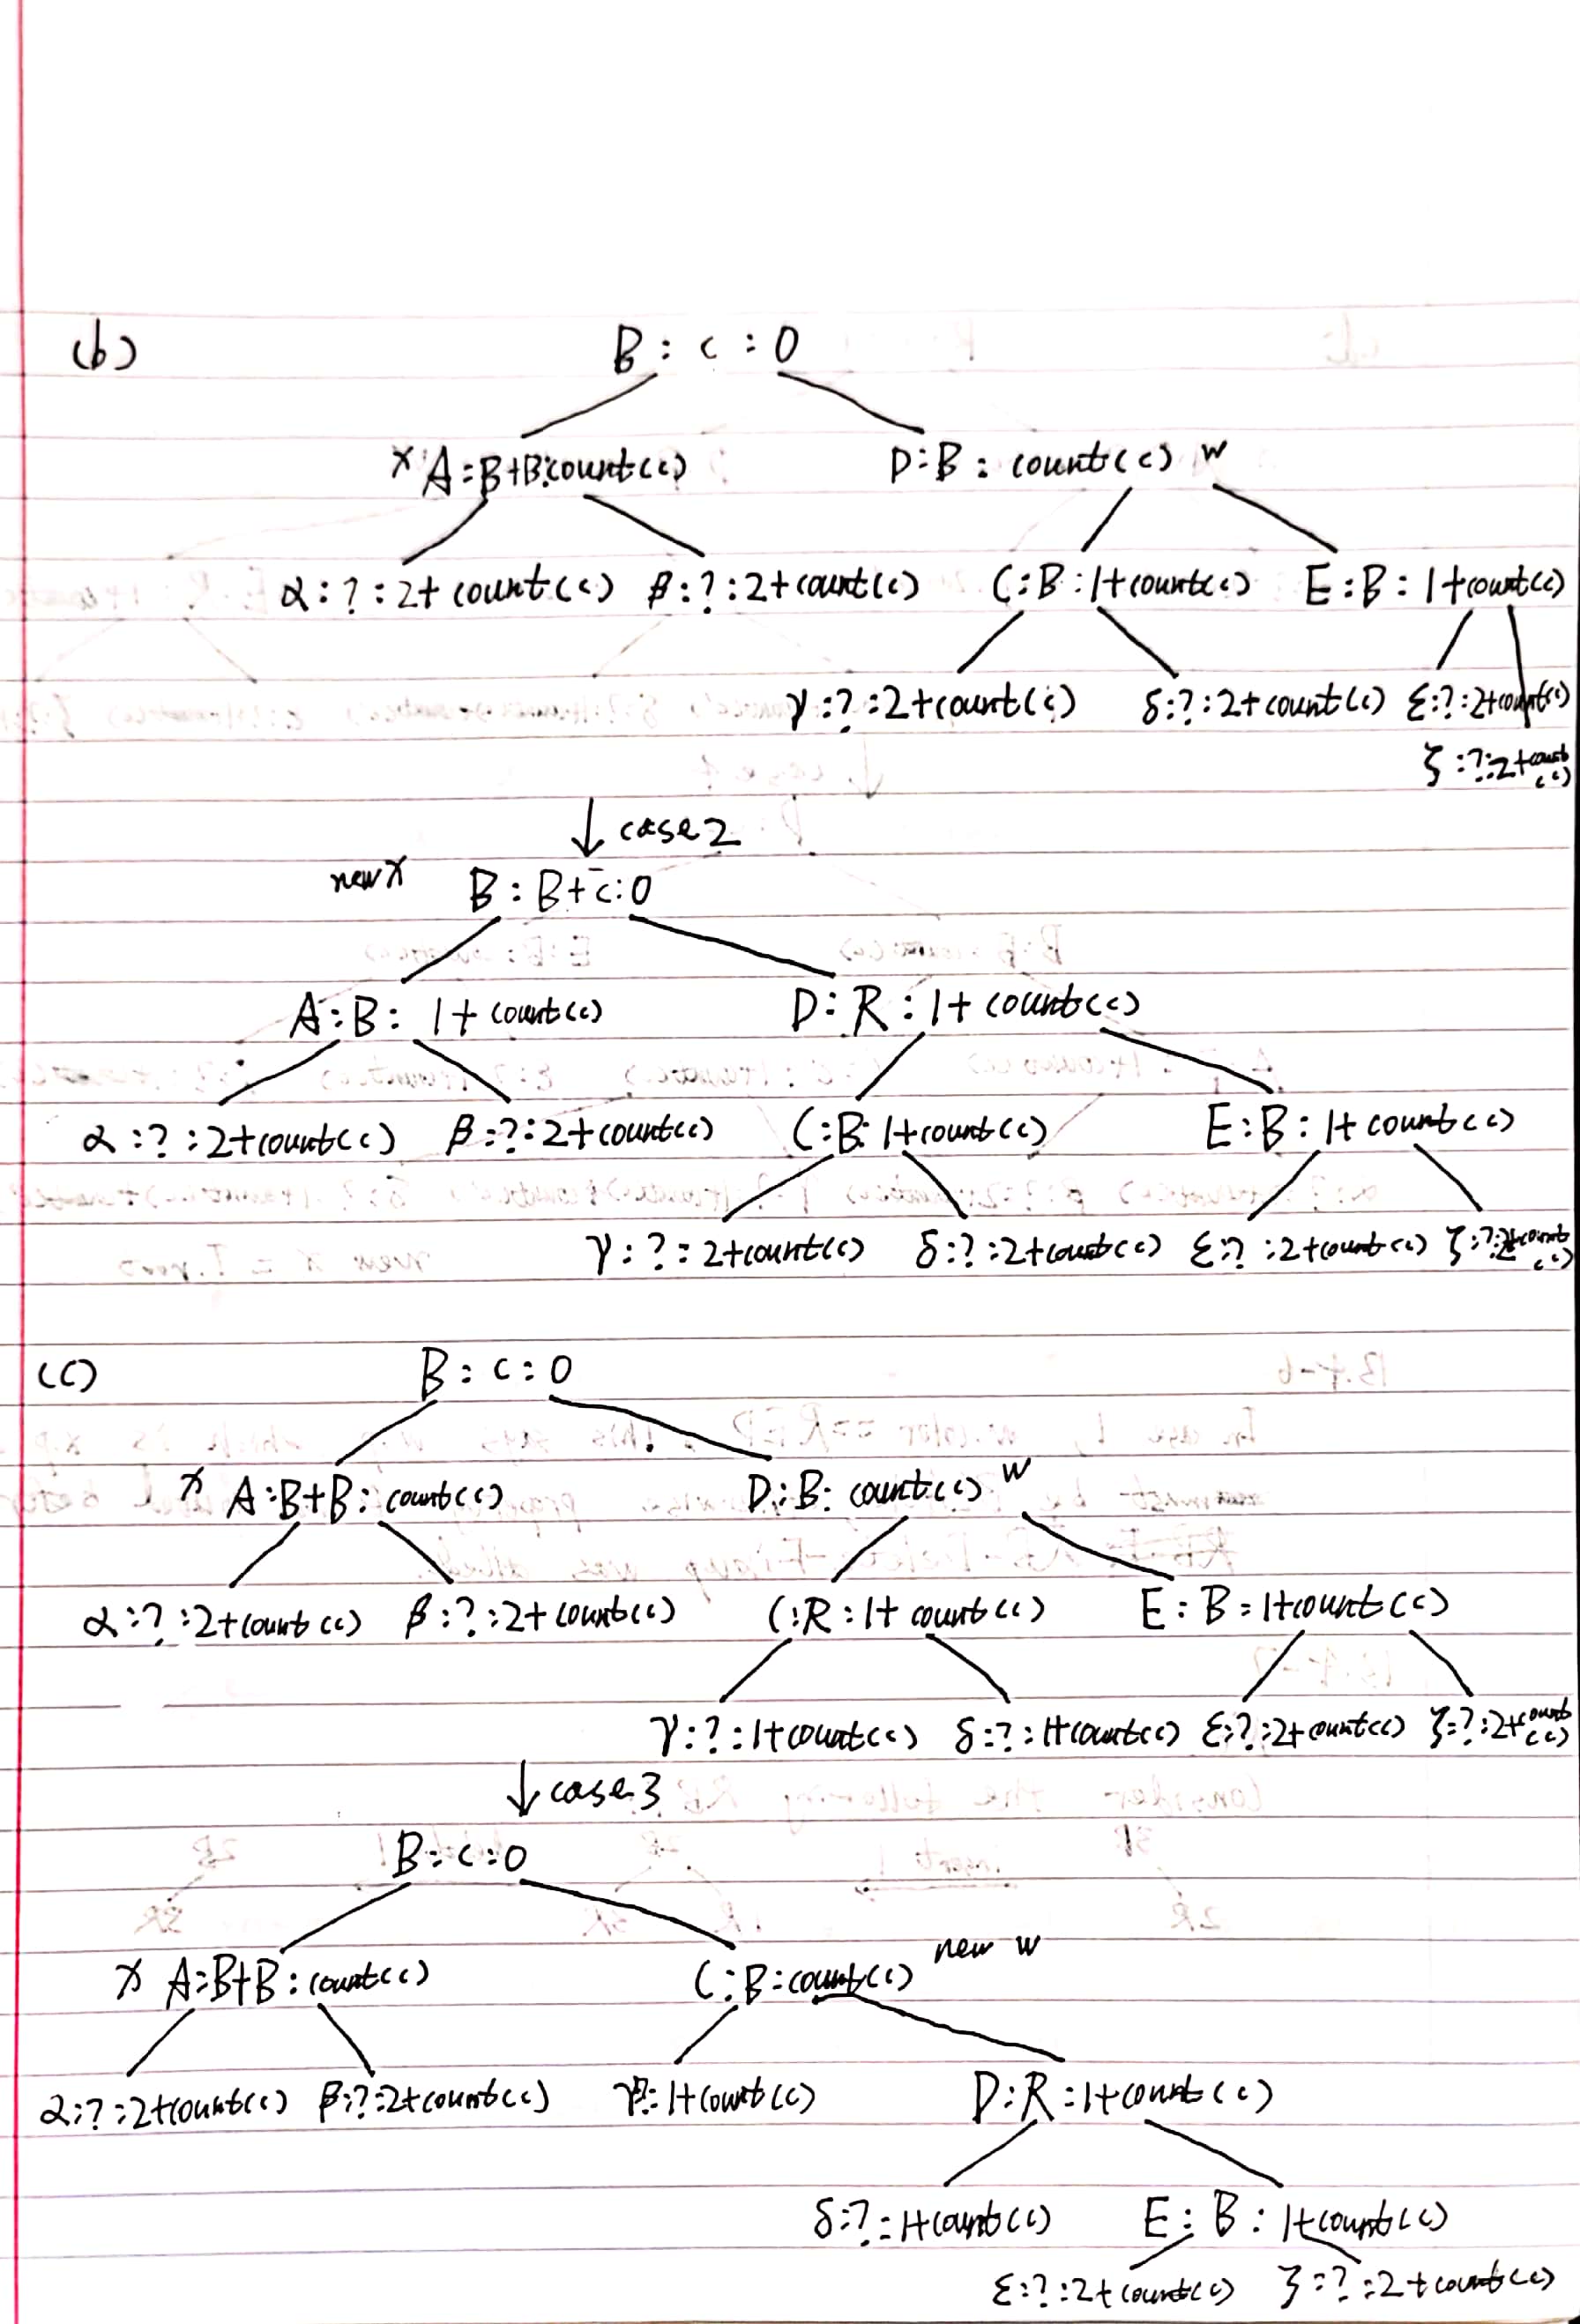 (b)
B : c : 0
x A : B+B : count(c) D : B : count(c) w
α : ? : 2+ count(c) β : ? : 2+count(c) C : B : 1+count(c) E : B : 1+count(c)
γ : ? : 2+count(c) δ : ? : 2+count(c) ε : ? : 2+count(c)
ζ : ? : 2+count(c)
↓ case 2
new x B : B+c : 0
A : B : 1+ count(c) D : R : 1+ count(c)
α : ? : 2+count(c) β : ? : 2+count(c) C : B : 1+count(c) E : B : 1+ count(c)
γ : ? : 2+count(c) δ : ? : 2+count(c) ε : ? : 2+count(c) ζ : ? : 2+count(c)
(c) B : c : 0
x A : B+B : count(c) D : B : count(c) w
α : ? : 2+count(c) β : ? : 2+count(c) C : R : 1+ count(c) E : B : 1+count(c)
γ : ? : 1+count(c) δ : ? : 1+count(c) ε : ? : 2+count(c) ζ : ? : 2+count(c)
↓ case 3
B : c : 0
x A : B+B : count(c) C : B : count(c) new w
α : ? : 2+count(c) β : ? : 2+count(c) γ : ? : 1+count(c) D : R : 1+count(c)
δ : ? : 1+count(c) E : B : 1+count(c)
ε : ? : 2+count(c) ζ : ? : 2+count(c)